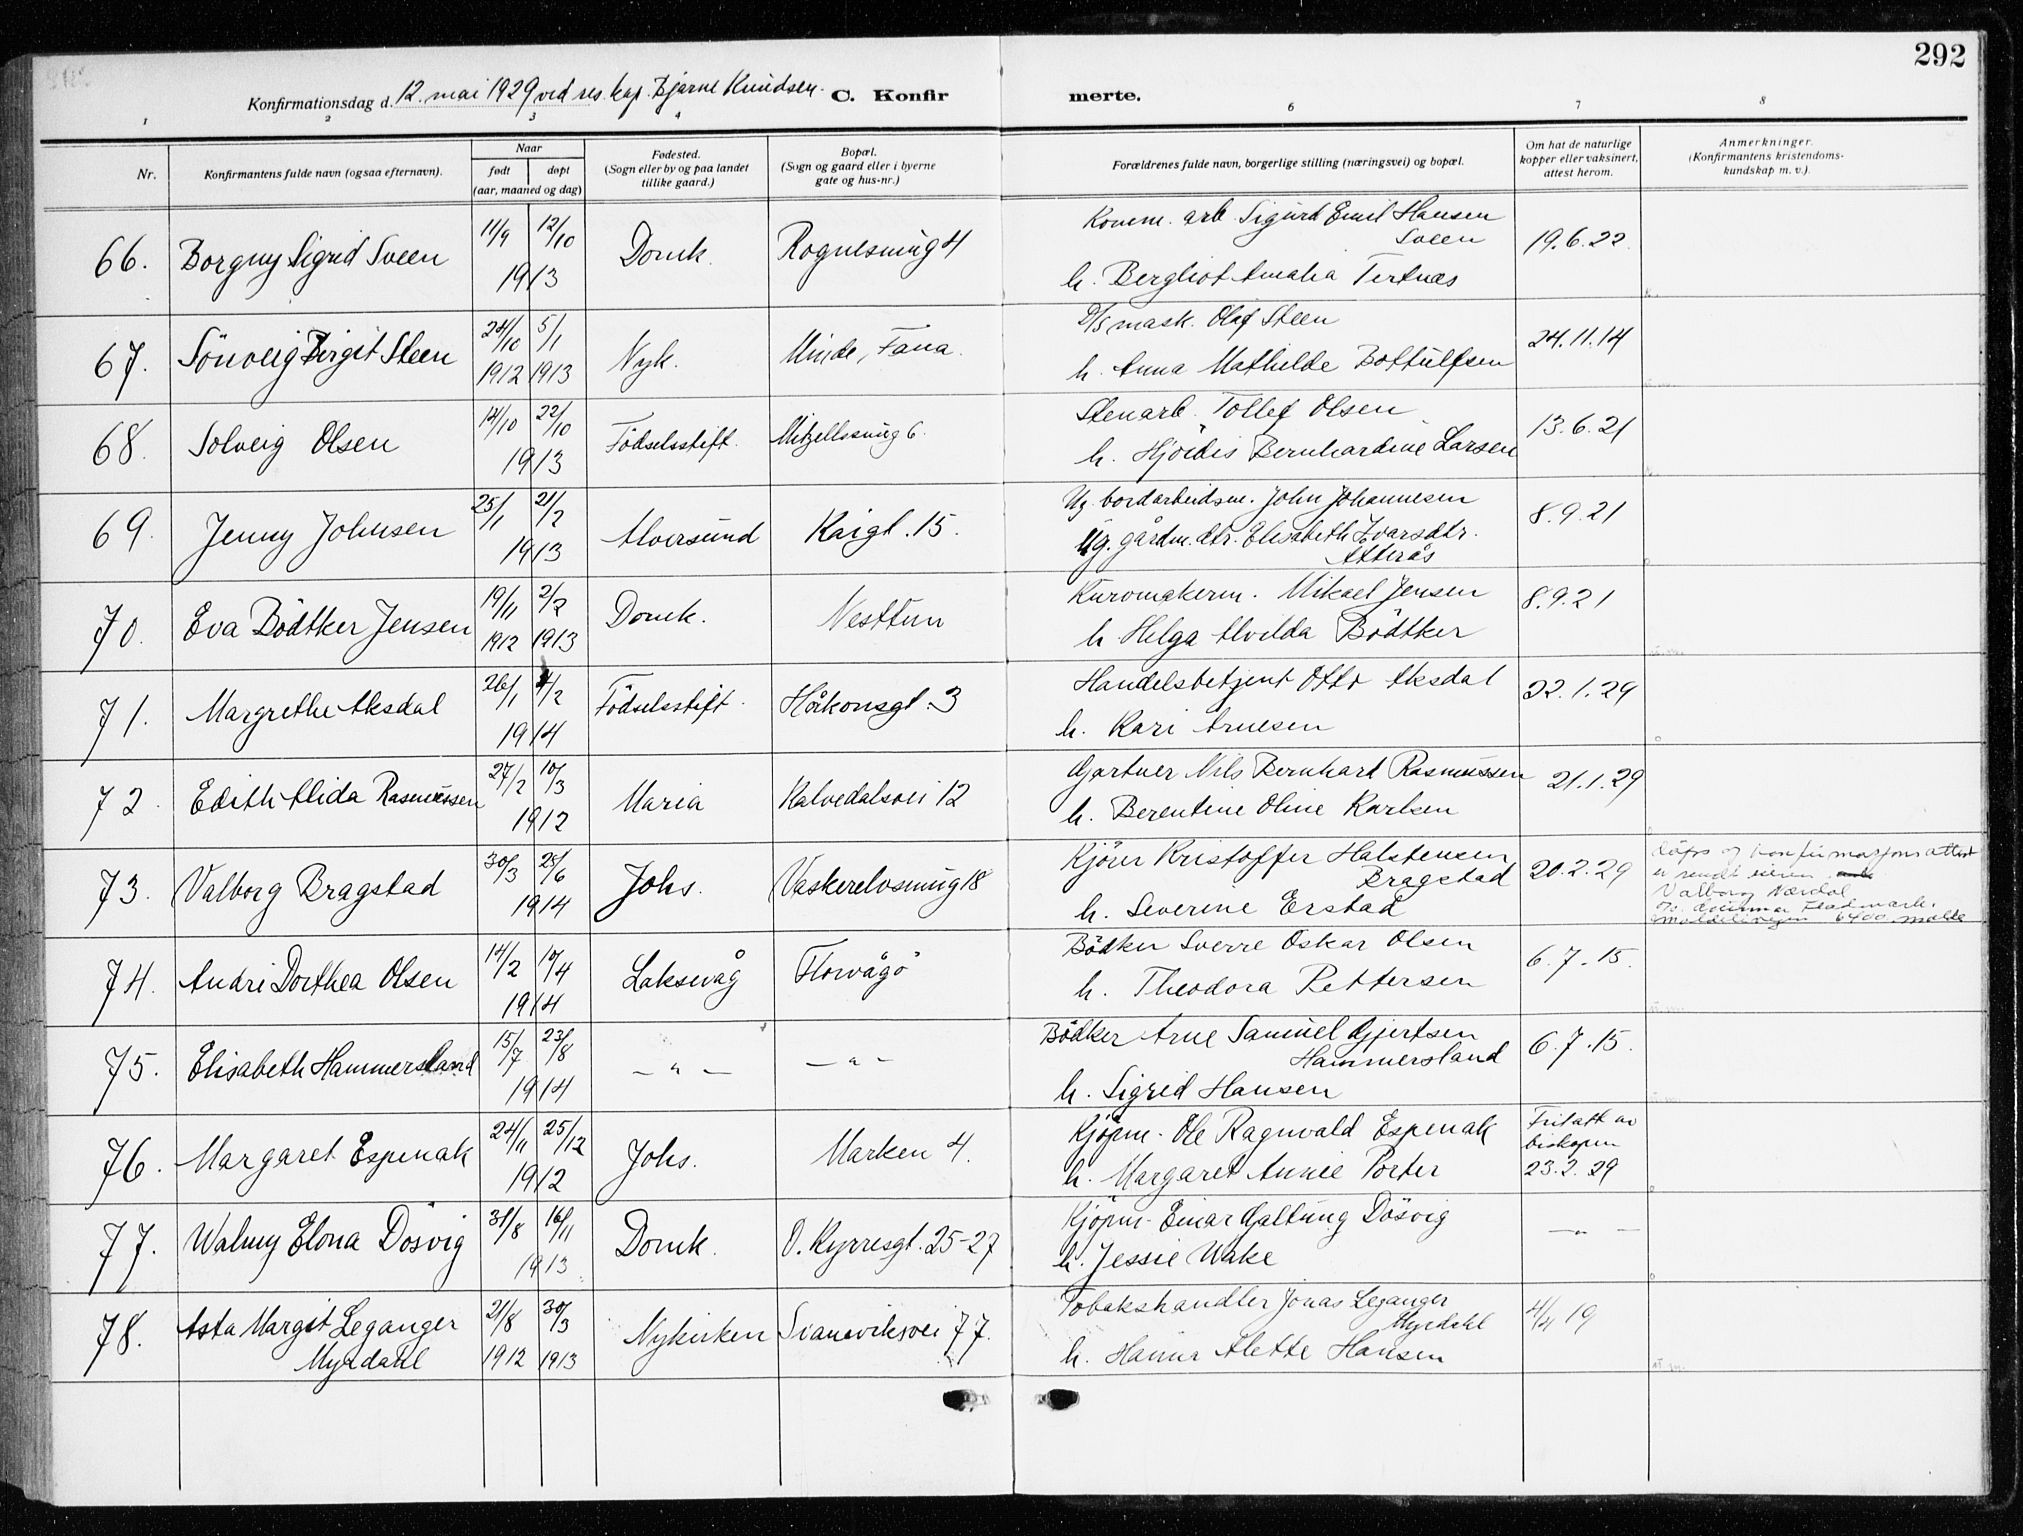 292
Konfirmationsdag d. 12. mai 1929 ved res. kap. Bjarne Knudsen.
C. Konfir merte.
1 2 3 4 6 7 8
Nr.
Konfirmantens fulde navn (ogsaa efternavn).
Naar
født døpt
(aar, maaned og dag)
Fødested.
(Sogn eller by og paa landet
tillike gaard.)
Bopæl.
(Sogn og gaard eller i byerne
gate og hus-nr.)
Forældrenes fulde navn, borgerlige stilling (næringsvei) og bopæl.
Om hat de naturlige
kopper eller vaksinert,
attest herom.
Anmerkninger.
(Konfirmantens kristendoms-
kundskap m. v.).
66. Borgny Sigrid Sveen 11/9 12/10 1913 Domk. Rognesmug 4
Komm. arb. Sigurd Emil Hansen
Sveen
h. Bergliot Amalia Tertnæs 19.6.22.
67. Sönveig Birgit Steen 24/10 1912 5/1 1913 Nyk. Minde, Fana.
D/S mask. Olaf Steen
h. Anna Mathilde Bottulfsen 24.11.14
68. Solveig Olsen 14/10 22/10 1913 Födselsstift. Mitzellssmug 6.
Stenarb. Tollef Olsen
h. Hjördis Bernhardine Larsen 13.6.21
69. Jenny Johnsen 25/1 21/2 1913 Alversund Kaigt. 15.
Ug. bordarbeidsm. John Johannesen
Ug. gårdm. dtr. Elisabeth Ivarsdtr.
Atterås 8.9.21
70. Eva Bödtker Jensen 19/11 1912 2/2 1913 Domk. Nesttun
Kuromakerm. Mikael Jensen
h. Helga Alvilda Bödtker 8.9.21
71. Margrethe Aksdal 26/1 4/2 1914 Födselsstift. Håkonsgt. 3
Handelsbetjent Otto Aksdal
h. Kari Arnesen 22.1.29
72. Edith Alida Rasmussen 27/2 10/3 1912 Maria Kalvedalsvei 12
Gartner Nils Bernhard Rasmussen
h. Berentine Oline Karlsen 21.1.29
73. Valborg Bragstad 30/3 25/6 1914 Johs. Vaskerelvsmug 18
Kjörer Kristoffer Halstensen
Bragstad
h. Severine Erstad 20.2.29
Dåps og konfirmasjonsattest
er sendt
Valborg Nærdal
6400 Molde
74. Andri Dorthea Olsen 14/2 10/4 1914 Laksevåg Florvågö
Bödker Sverre Oskar Olsen
h. Theodora Pettersen 6.7.15.
75. Elisabeth Hammersland 15/7 23/8 1914 — " — — " —
Bödker Arne Samuel Gjertsen
Hammersland
h. Sigrid Hansen 6.7.15.
76. Margaret Espenak 24/11 25/12 1912 Johs. Marken 4.
Kjöpm. Ole Ragnvald Espenak
h. Margaret Annie Porter
Fritatt av
biskopen
23.2.29
77. Walmy Elona Dösvig 31/8 16/11 1913 Domk. O. Kyrresgt. 25-27
Kjöpm. Einar Galtung Dösvig
h. Jessie Wake — " —
78. Asta Margit Leganger
Myrdahl 21/8 1912 30/3 1913 Nykirken Svaneviksvei 77.
Tobakshandler Jonas Leganger
Myrdahl
h. Hanna Alette Hansen 4/4 19